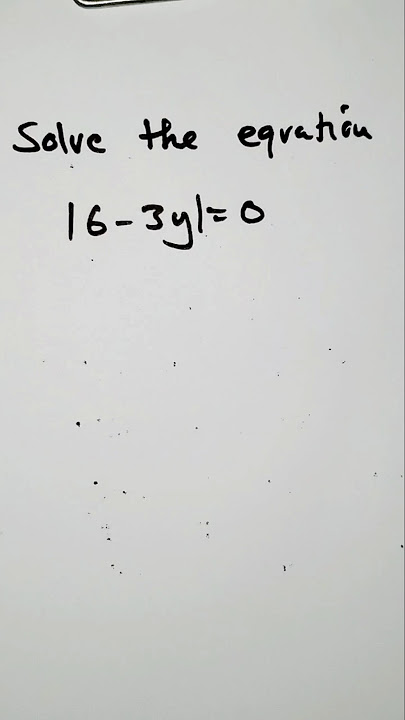 Solve the equation
|6-3y|=0